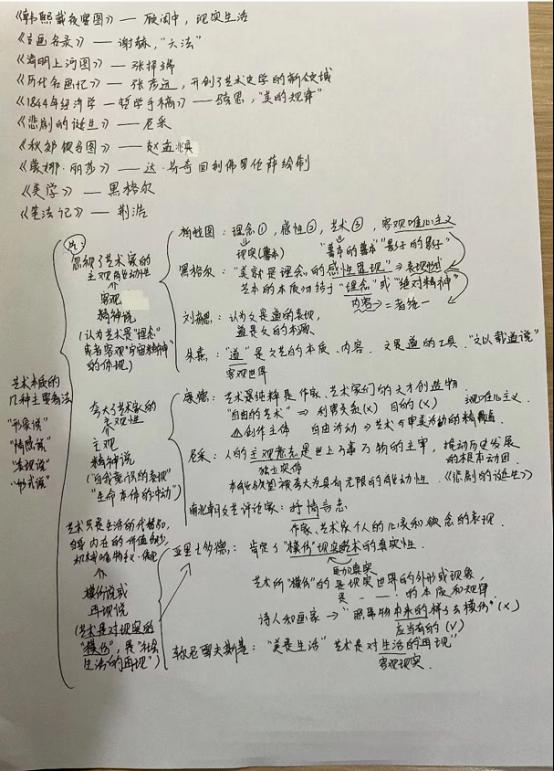 《韩熙载夜宴图》—— 顾闳中，现实生活
《古画名录》—— 谢赫，“六法”
《清明上河图》—— 张择端
《历代名画记》—— 张彦远，开创了艺术史学的新领域
《1844年经济学—哲学手稿》—— 马克思，“美的规律”
《悲剧的诞生》—— 尼采
《秋郊饮马图》—— 赵孟頫
《蒙娜·丽莎》—— 达·芬奇 回到佛罗伦萨绘制
《美学》—— 黑格尔
《笔法记》—— 荆浩
艺术本质的
几种主要看法
“形象说”
“情感说”
“表现说”
“形式说”
忽视了艺术家的
主观能动性
客观
精神说
(认为艺术是“理念”
或者客观“宇宙精神”
的体现)
柏拉图：理念①，感性②，艺术③，客观唯心主义
现实(摹本)
“摹本的摹本”“影子的影子”
黑格尔：“美就是理念的感性显现”⇒表现形式
艺术的本质归结于“理念”或“绝对精神”
内容→二者统一
刘勰：认为文是道的表现，
道是文的本源
朱熹：“道”是文艺的本质、内容、文是道的工具.“文以载道说”
客观世界
夸大了艺术家的
主观性
主观
精神说
(“自我意识的表现”
“生命本体的冲动”)
康德：艺术是纯粹是作家、艺术家们的天才创造物
“自由的艺术”⇒利害关系(×) 目的(×) 主观唯心主义.
△创作主体 自由活动→艺术与审美活动的精髓
尼采：人的主观意志是世上万事万物的主宰，推动历史发展
的根本动因
独立实体
本能欲望被夸大为具有无限的能动性.《悲剧的诞生》
南北朝文艺评论家：抒情言志
作家、艺术家个人的心灵和欲念的表现.
自身内在的价值缺少,
模仿说或
再现说
(艺术是对现实的
“模仿”，是“社会
生活的再现”)
亚里士多德：肯定了“模仿”现实艺术的真实性.
更加真实
艺术所“模仿”的是现实世界的外形或现象，
是 - - - - 的本质和规律.
诗人和画家→“照事物本来的样子去模仿”(×)
应当有的(√)
车尔尼雪夫斯基：“美是生活”艺术是对生活的再现”
客观现实.